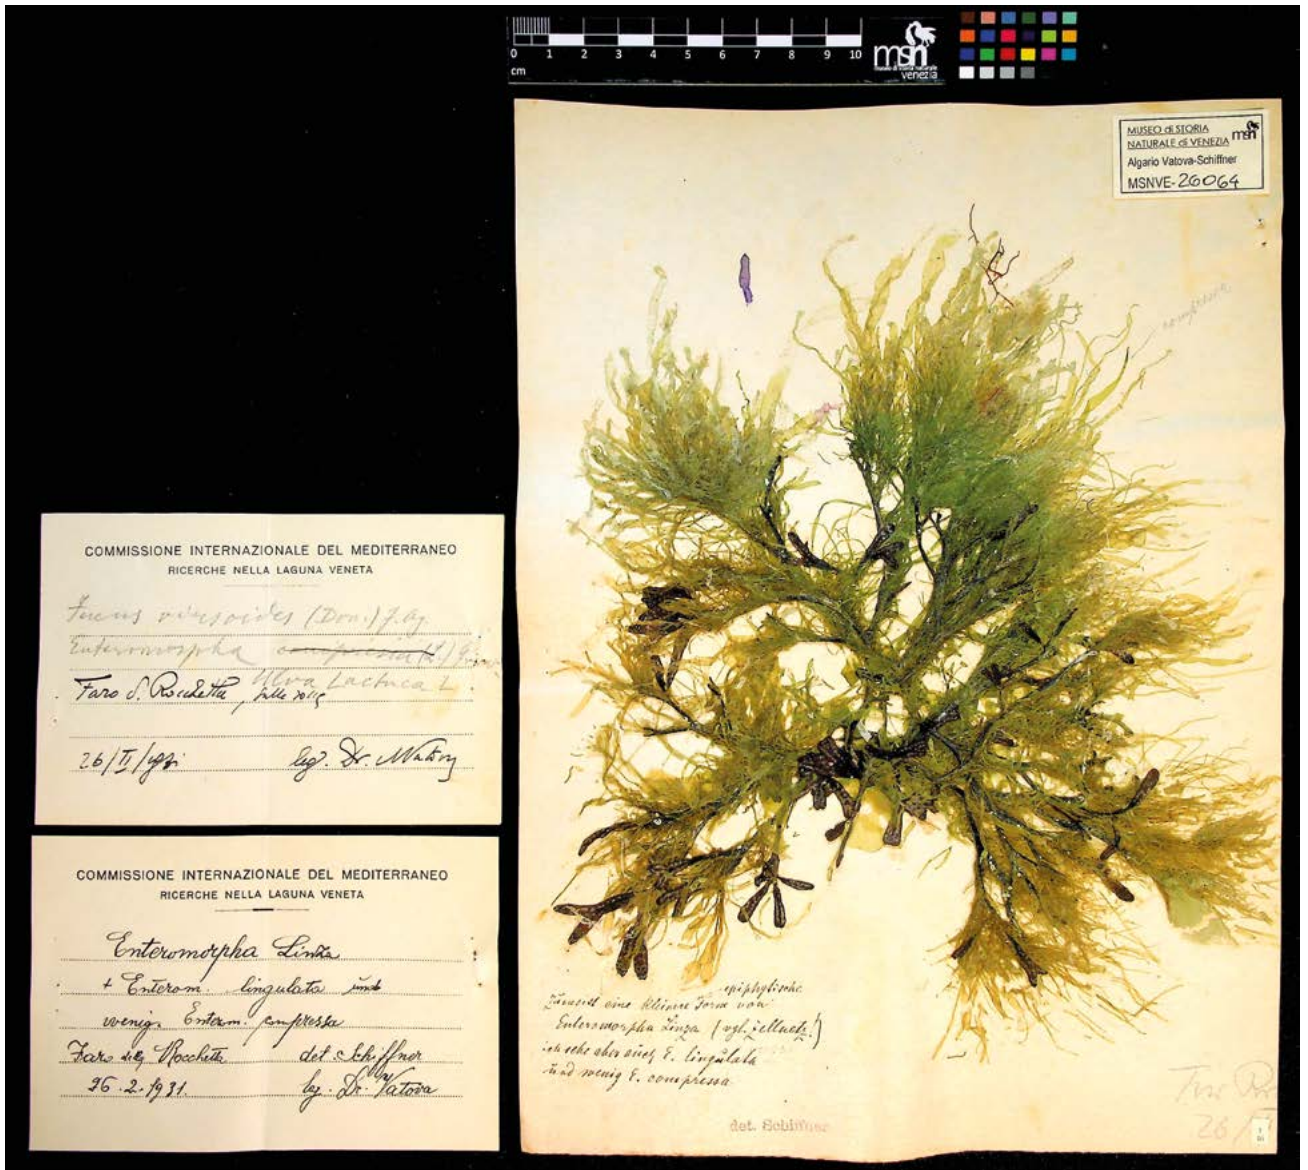 0 1 2 3 4 5 6 7 8 9 10
cm
msn
museo di storia naturale
venezia
MUSEO di STORIA
NATURALE di VENEZIA
msn
Algario Vatova-Schiffner
MSNVE-26064
compressa
COMMISSIONE INTERNAZIONALE DEL MEDITERRANEO
RICERCHE NELLA LAGUNA VENETA
Fucus virsoides (Don.) J. Ag.
Enteromorpha compressa (L.)
Ulva Lactuca L
Faro d. Rocchetta,
26/II/1931 leg. Dr. AVatova
COMMISSIONE INTERNAZIONALE DEL MEDITERRANEO
RICERCHE NELLA LAGUNA VENETA
Enteromorpha Linza
+ Enterom. lingulata und
wenig. Enterom. compressa
Faro della Rocchetta det Schiffner
26.2.1931. leg. Dr. Vatova
epiphytische
Zumeist eine kleine Form von
Enteromorpha Linza (vgl. Zellnetz!)
ich sehe aber auch E. lingulata
und wenig E. compressa
det. Schiffner
26/II